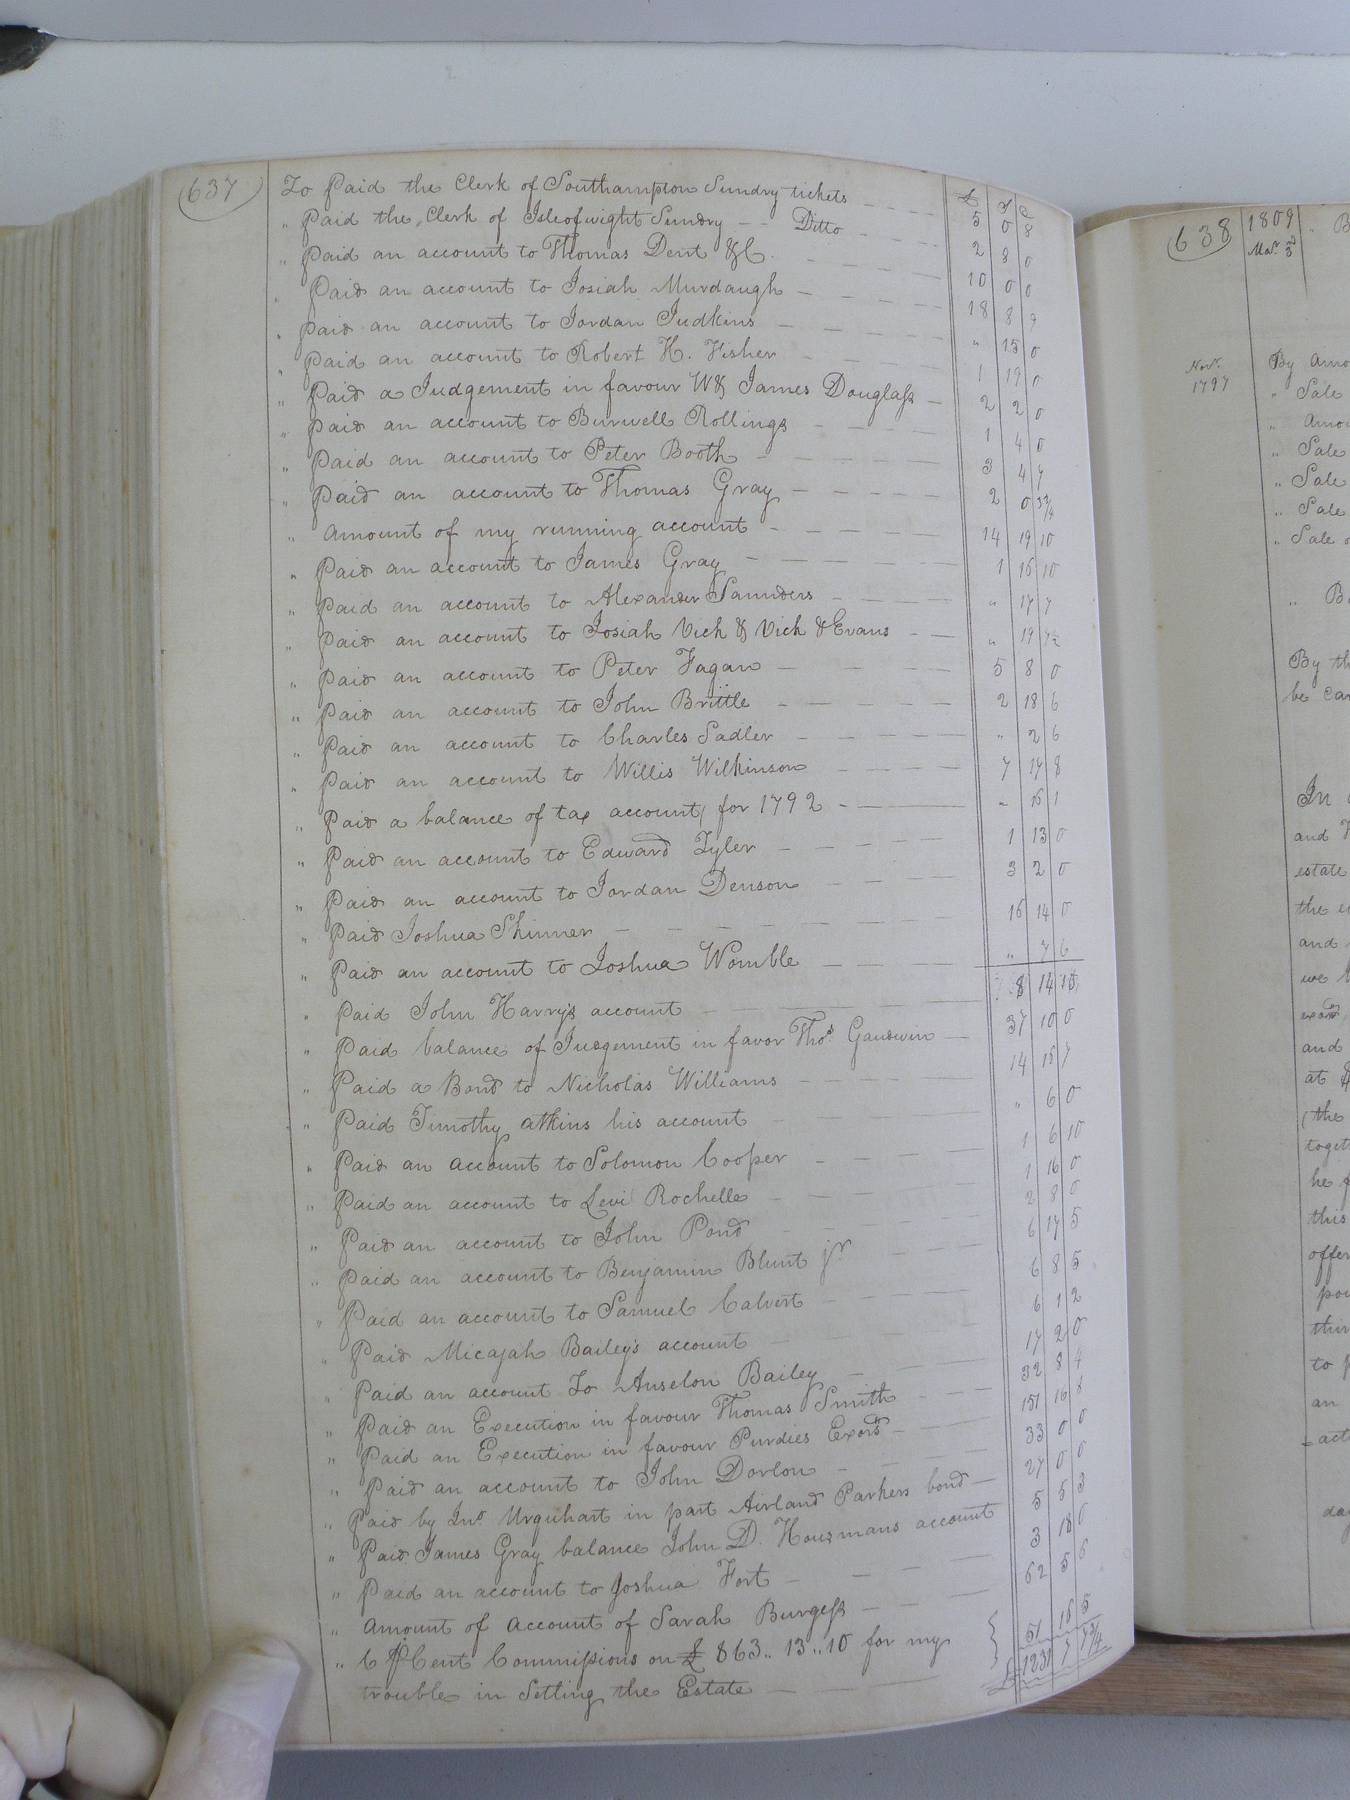 637
£ S D
To Paid the Clerk of Southampton Sundry tickets 5 0 8
" Paid the Clerk of Isle of wight Sundry Ditto 2 8 0
" Paid an account to Thomas Dent & C. 10 0 0
" Paid an account to Josiah Murdaugh 18 8 9
" Paid an account to Jordan Judkins " 15 0
" Paid an account to Robert H. Fisher 1 19 0
" Paid a Judgement in favour W & James Douglass 2 2 0
" Paid an account to Burwell Rollings 1 4 0
" Paid an account to Peter Booth 3 4 7
" Paid an account to Thomas Gray 2 0 3 3/4
" Amount of my running account 14 19 10
" Paid an account to James Gray 1 16 10
" Paid an account to Alexander Saunders " 17 7
" Paid an account to Josiah Vick & Vick & Evans " 19 4½
" Paid an account to Peter Fagan 5 8 0
" Paid an account to John Brittle 2 18 6
" Paid an account to Charles Sadler " 2 6
" Paid an account to Willis Wilkinson 7 17 8
" Paid a balance of tax account for 1792 " 15 1
" Paid an account to Edward Tyler 1 13 0
" Paid an account to Jordan Denson 3 2 0
" Paid Joshua Skinner 16 14 0
" Paid an account to Joshua Womble " 7 6
" Paid John Harry's account 8 14
" Paid balance of Judgement in favor Thos. Gardwin 37 10 0
" Paid a Bond to Nicholas Williams 14 15 7
" Paid Timothy atkins his account " 6 0
" Paid an account to Solomon Cooper 1 6 10
" Paid an account to Levi Rochelle 1 16 0
" Paid an account to John Pond 2 8 0
" Paid an account to Benjamin Blunt jr 6 17 5
" Paid an account to Samuel Calvert 6 8 5
" Paid Micajah Bailey's account 6 1 2
" Paid an account To Anselon Bailey 17 2 0
" Paid an Execution in favour Thomas Smith 32 8 4
" Paid an Execution in favour Purdies Exors 151 16 8
" Paid an account to John Dorlon 33 0 0
" Paid by Jno. Urquhart in part Airland Parkers bond 27 0 0
" Paid James Gray balance John D. Housmans account 5 5 3
" Paid an account to Joshua Fort 3 18 0
" Amount of Account of Sarah Burgess 62 5 6
" 6 PCent Commissions on £ 863.. 13..10 for my
trouble in Setling the Estate 51 16 5
£1231 7 7¾
638
1809
Mar. 3d
Novr.
1797
By Amo
" Sale
" Amou
" Sale
" Sale
" Sale
" Sale o
By th
be car
In
and
estate
the
and
we
exors.
and
at
(the
toget
he
this
offer
pou
thir
to
an
act
day